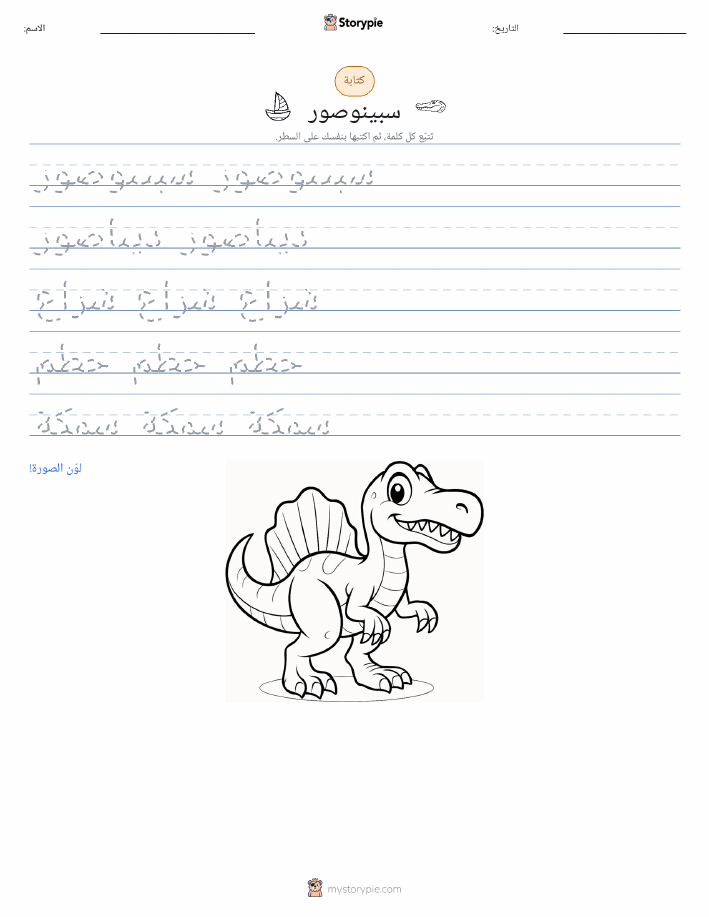 الاسم:
Storypie
التاريخ:
كتابة
سبينوصور
تتبّع كل كلمة، ثم اكتبها بنفسك على السطر.
سبينوصور سبينوصور
ديناصور ديناصور
شراع شراع شراع
خطم خطم خطم
سمكة سمكة سمكة
لوّن الصورة!
mystorypie.com